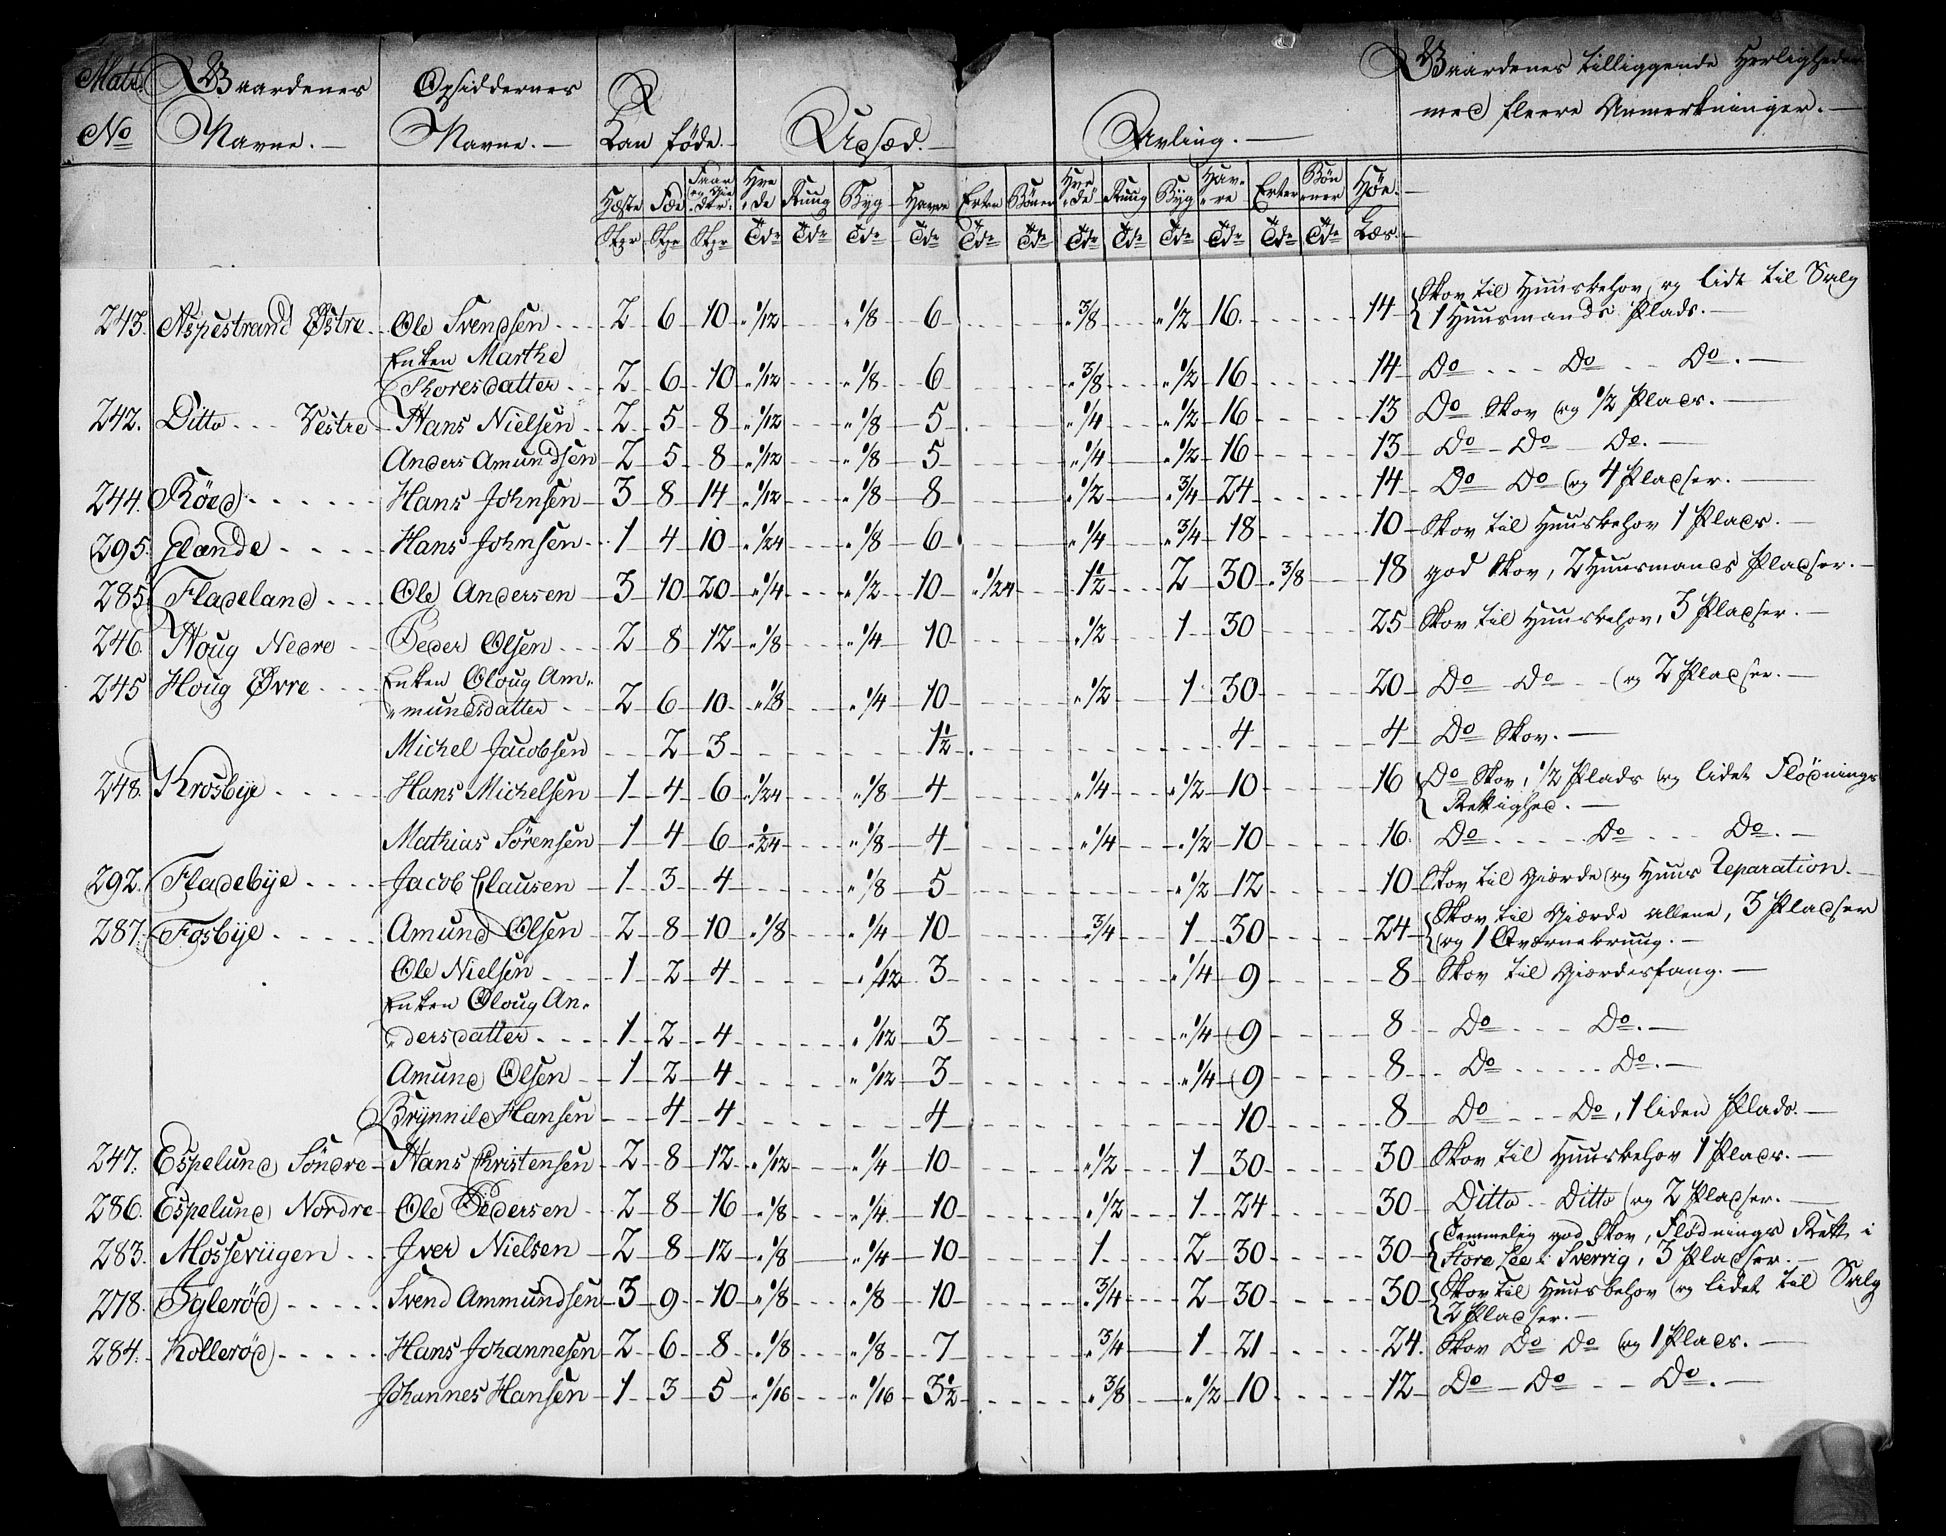 Matr. Gaardenes Opsiddernes Kan føde. Udsæd. Avling. Gaardenes tilliggende Herligheder
No Navne. Navne. med fleere Anmerkninger.
Hæste Fæe Faar og Gie der. Hve de Ruug Byg Havre Erter Bøner Hve de Ruug Byg Hav re Erter Bøn ner Høe
Stkr Stkr Stkr Tdr Tdr Tdr Tdr Tdr Tdr Tdr Tdr Tdr Tdr Tdr Tdr Læs
243. Aspestrand Østre Ole Svendsen 2 6 10 1/12 1/8 6 3/8 1/2 16 14 Skov til Huusbehov, og lidt til Salg
1 Huusmands Plads.
Enken Marthe
Thoresdatter 2 6 10 1/12 1/8 6 3/8 1/2 16 14 Do Do Do.
242. Ditto Vestre Hans Nielsen 2 5 8 1/12 1/8 5 1/4 1/2 16 13 Do Skov og 1/2 Plads.
Anders Amundsen 2 5 8 1/12 1/8 5 1/4 1/2 16 13 Do Do Do.
244. Röed Hans Johnsen 3 8 14 1/12 1/8 8 1/2 3/4 24 14 Do Do og 4 Pladser.
295. Elænde Hans Johnsen 1 4 10 1/24 1/8 6 1/4 3/4 18 10 Skov til Huusbehov 1 Plads.
285. Fladeland Ole Andersen 3 10 20 1/4 1/2 10 1/24 1 1/2 2 30 3/8 18 god Skov, 2 Huusmands Pladser.
246. Houg Nedre Peder Olsen 2 8 12 1/8 1/4 10 1/2 1 30 25 Skov til Huusbehov, 3 Pladser.
245 Houg Øvre Enken Oloug Am-
mundsdatter 2 6 10 1/8 1/4 10 1/2 1 30 20 Do Do og 2 Pladser.
Michel Jacobsen 2 3 1 1/2 4 4 Do Skov.
248. Krosbye Hans Michelsen 1 4 6 1/24 1/8 4 1/4 1/2 10 16 Do Skov, 1/2 Plads og lidet Flödnings
Rettighed.
Mathias Sörensen 1 4 6 1/24 1/8 4 1/4 1/2 10 16. Do Do Do.
292. Fladebye Jacob Clausen 1 3 4 1/8 5 1/2 12 10 Skov til Giærde og Huus Reparation.
287. Fosbye Amund Olsen 2 8 10 1/8 1/4 10 3/4 1 30 24 Skov til Giærde allene, 3 Pladser
og 1 Qværnebruug.
Ole Nielsen 1 2 4 1/12 3 1/4 9 8 Skov til Giærdesfang.
Enken Oloug An-
dersdatter 1 2 4 1/12 3 1/4 9 8 Do Do.
Amund Olsen 1 2 4 1/12 3 1/4 9 8 Do Do.
Brynnild Hansen 4 4 4 10 8 Do Do, 1 liden Plads.
247. Espelund Söndre Hans Christensen 2 8 12 1/12 1/4 10 1/2 1 30 30 Skov til Huusbehov 1 Plads.
286. Espelund Nordre Ole Pedersen 2 8 16 1/8 1/4 10 1/2 1 24 30 Ditto Ditto og 2 Pladser.
283. Mossevügen Jver Nielsen 2 8 12 1/8 1/4 10 1 2 30 30 Temmelig god Skov, Flödnings Rett i
Store See i Sverrig, 3 Pladser.
278. Iglerød Svend Ammundsen 3 9 10 1/8 1/8 10 3/4 2 30 30 Skov til Huusbehov og lidet til Salg
2 Pladser.
284. Kollerød Hans Johannesen 2 6 8 1/8 1/8 7 3/4 1 21 24. Skov Do Do og 1 Plads.
Johannes Hansen 1 3 5 1/16 1/16 3 1/2 3/8 1/2 10 12 Do Do Do.